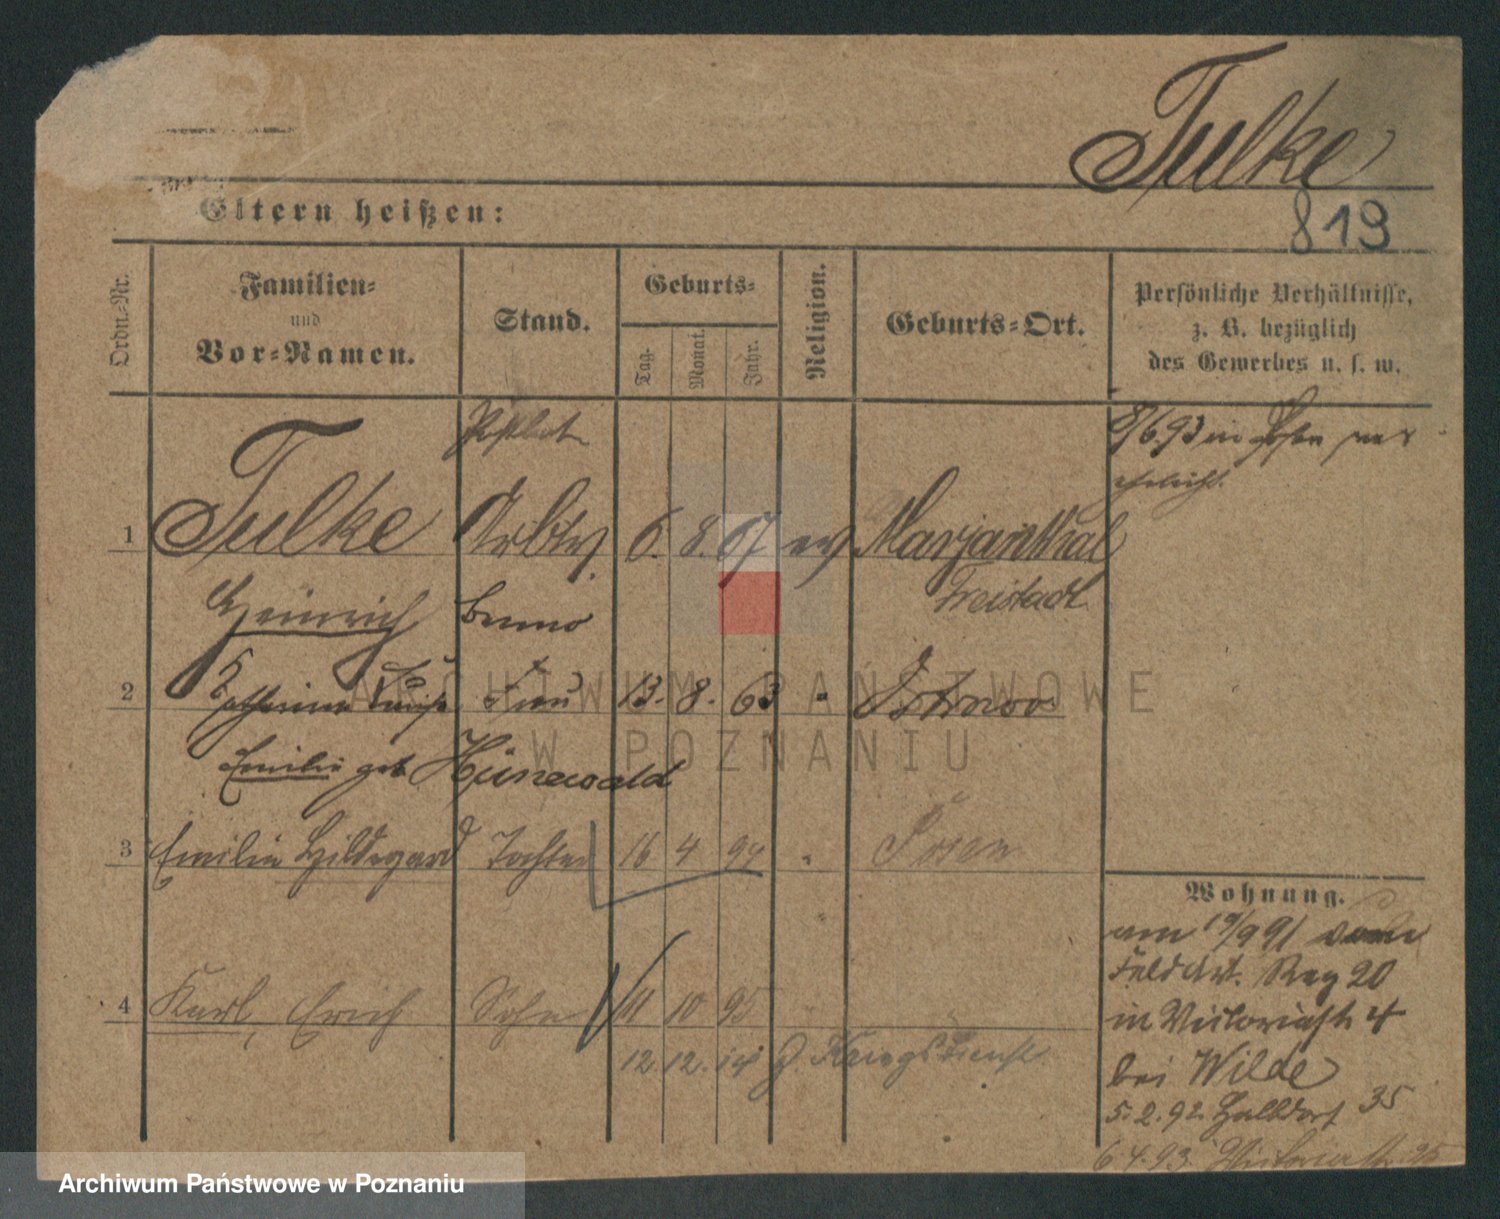 Tulke
819
Eltern heißen:
Ordn.-Nr.
Familien-
und
Vor-Namen.
Stand.
Geburts-
Tag.
Monat.
Jahr.
Religion.
Geburts-Ort.
Persönliche Verhältnisse,
z. B. bezüglich
des Gewerbes u. s. w.
8/6 93 in Posen ver
ehelicht.
1 Tulke Arbtr. 6. 8. 67 ev Marjanthal
Heinrich Bruno Freistadt
2 Katharina Luise Frau 13. 8. 63 " Ostrowo
Emilie geb Hünewald
3 Emilie Hildegard Tochter 16 4 94 " Posen
4 Karl, Erich Sohn 11 10 95
12. 12. 14 z. Kriegsdienst
Wohnung.
am 19/9 91 vom
Feld Art. Reg 20
in Victoriastr 4
bei Wilde
5. 2. 92 Halbdorf 35
6 4. 93
ARCHIWUM PAŃSTWOWE
W POZNANIU
Archiwum Państwowe w Poznaniu